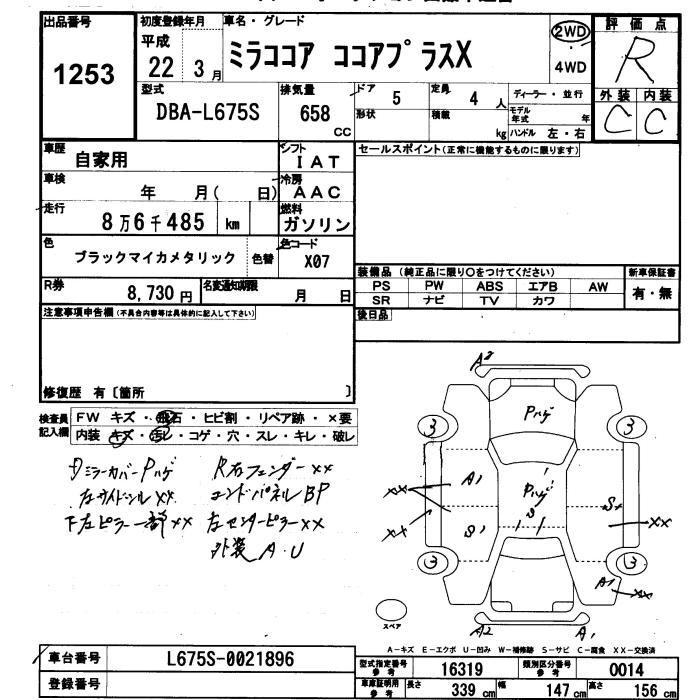 出品番号
1253
初度登録年月
平成
22 3月
車名・グレード
ミラココア ココアプラスX
2WD
4WD
評価点
R
外装 内装
C C
型式
DBA-L675S
排気量
658
CC
ドア
5
定員
4 人
ディーラー・並行
形状
積載
kg
モデル年式
年
ハンドル 左・右
車歴
自家用
シフト
IAT
車検
年 月( 日)
冷房
AAC
走行
8万6千485 km
燃料
ガソリン
色
ブラックマイカメタリック
色替
色コード
X07
R券
8,730円
名変通知期限
月 日
セールスポイント(正常に機能するものに限ります)
装備品 (純正品に限り〇をつけてください)
新車保証書
PS PW ABS エアB AW
SR ナビ TV カワ
有・無
後日品
注意事項申告欄(不具合内容等は具体的に記入して下さい)
修復歴 有〔箇所 〕
検査員記入欄
FW キズ・飛石・ヒビ割・リペア跡・×要
内装 キズ・汚レ・コゲ・穴・スレ・キレ・破レ
ミラーカバーPハゲ R右フェンダーXX
左サイドシルXX エンドパネルBP
左ピラー一部XX 左センターピラーXX
外装 A・U
A2
Pハゲ
3 3
A1
Pハゲ
XX
S
XX
S1
XX
3 3
A1
XX
A2 A1
スペア
A-キズ E-エクボ U-凹み W-補修跡 S-サビ C-腐食 XX-交換済
車台番号
L675S-0021896
登録番号
型式指定番号
参考
16319
類別区分番号
参考
0014
車庫証明用
参考
長さ
339 cm
幅
147 cm
高さ
156 cm